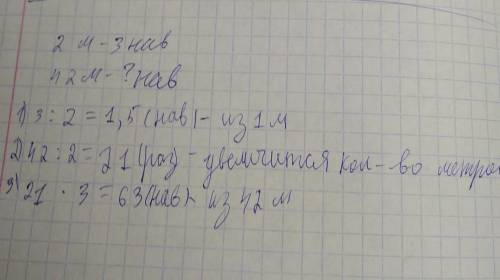 2 м - 3 нав
42 м - ? нав
1) 3 : 2 = 1,5 (нав) - из 1 м
2) 42 : 2 = 21 (раз) - увеличится кол-во метров
3) 21 · 3 = 63 (нав) - из 42 м